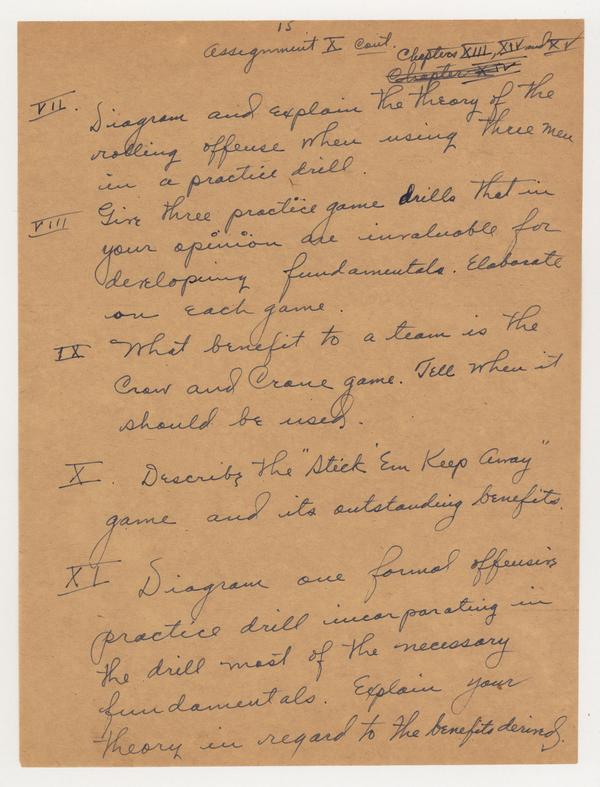 15
Assignment X Cont.
Chapters XIII, XIV and XV
Chapter XIV
VII. Diagram and explain the theory of the
rolling offense when using three men
in a practice drill.
VIII Give three practice game drills that in
your opinion are invaluable for
developing fundamentals. Elaborate
on each game.
IX What benefit to a team is the
Crow and Crane game. Tell when it
should be used.
X. Describe the "Stick 'Em Keep Away"
game and its outstanding benefits.
XI Diagram one formal offensive
practice drill incorporating in
the drill most of the necessary
fundamentals. Explain your
theory in regard to the benefits derived.